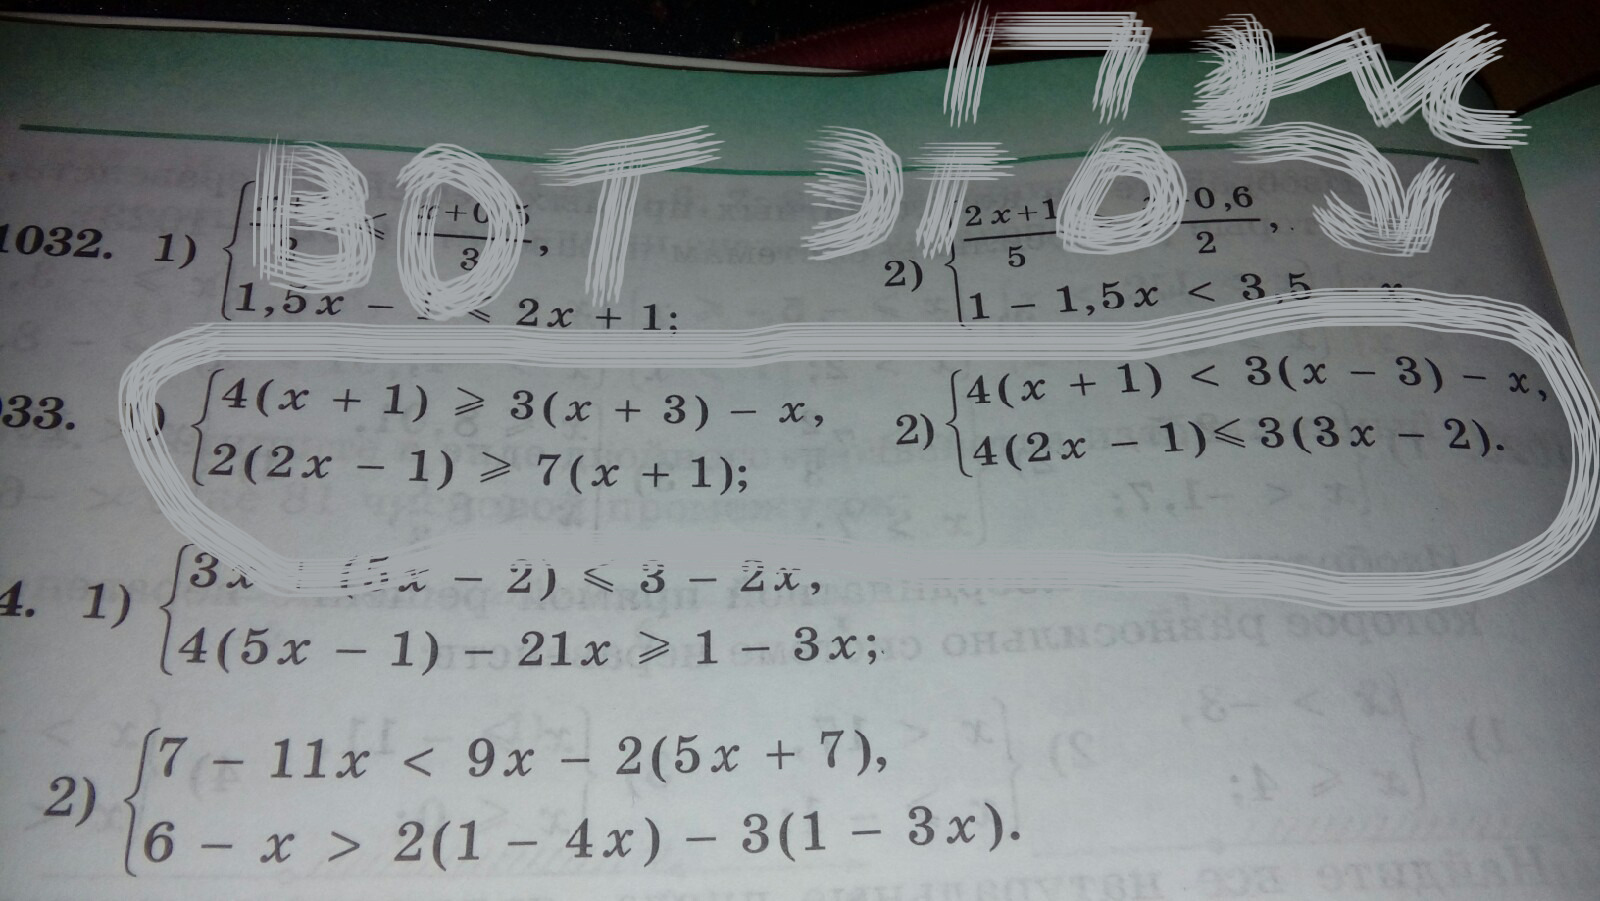 ПЖ
ВОТ ЭТО
1032. 1) ⩽ x+0,5/3,
1,5x − ⩽ 2x + 1;
2) 2x+1/5 0,6/2,
1 − 1,5x < 3,5 − x.
33. ) {4(x + 1) ⩾ 3(x + 3) − x,
2(2x − 1) ⩾ 7(x + 1);
2) {4(x + 1) < 3(x − 3) − x,
4(2x − 1) ⩽ 3(3x − 2).
4. 1) {3x (5x − 2) ⩽ 3 − 2x,
4(5x − 1) − 21x ⩾ 1 − 3x;
2) {7 − 11x < 9x − 2(5x + 7),
6 − x > 2(1 − 4x) − 3(1 − 3x).